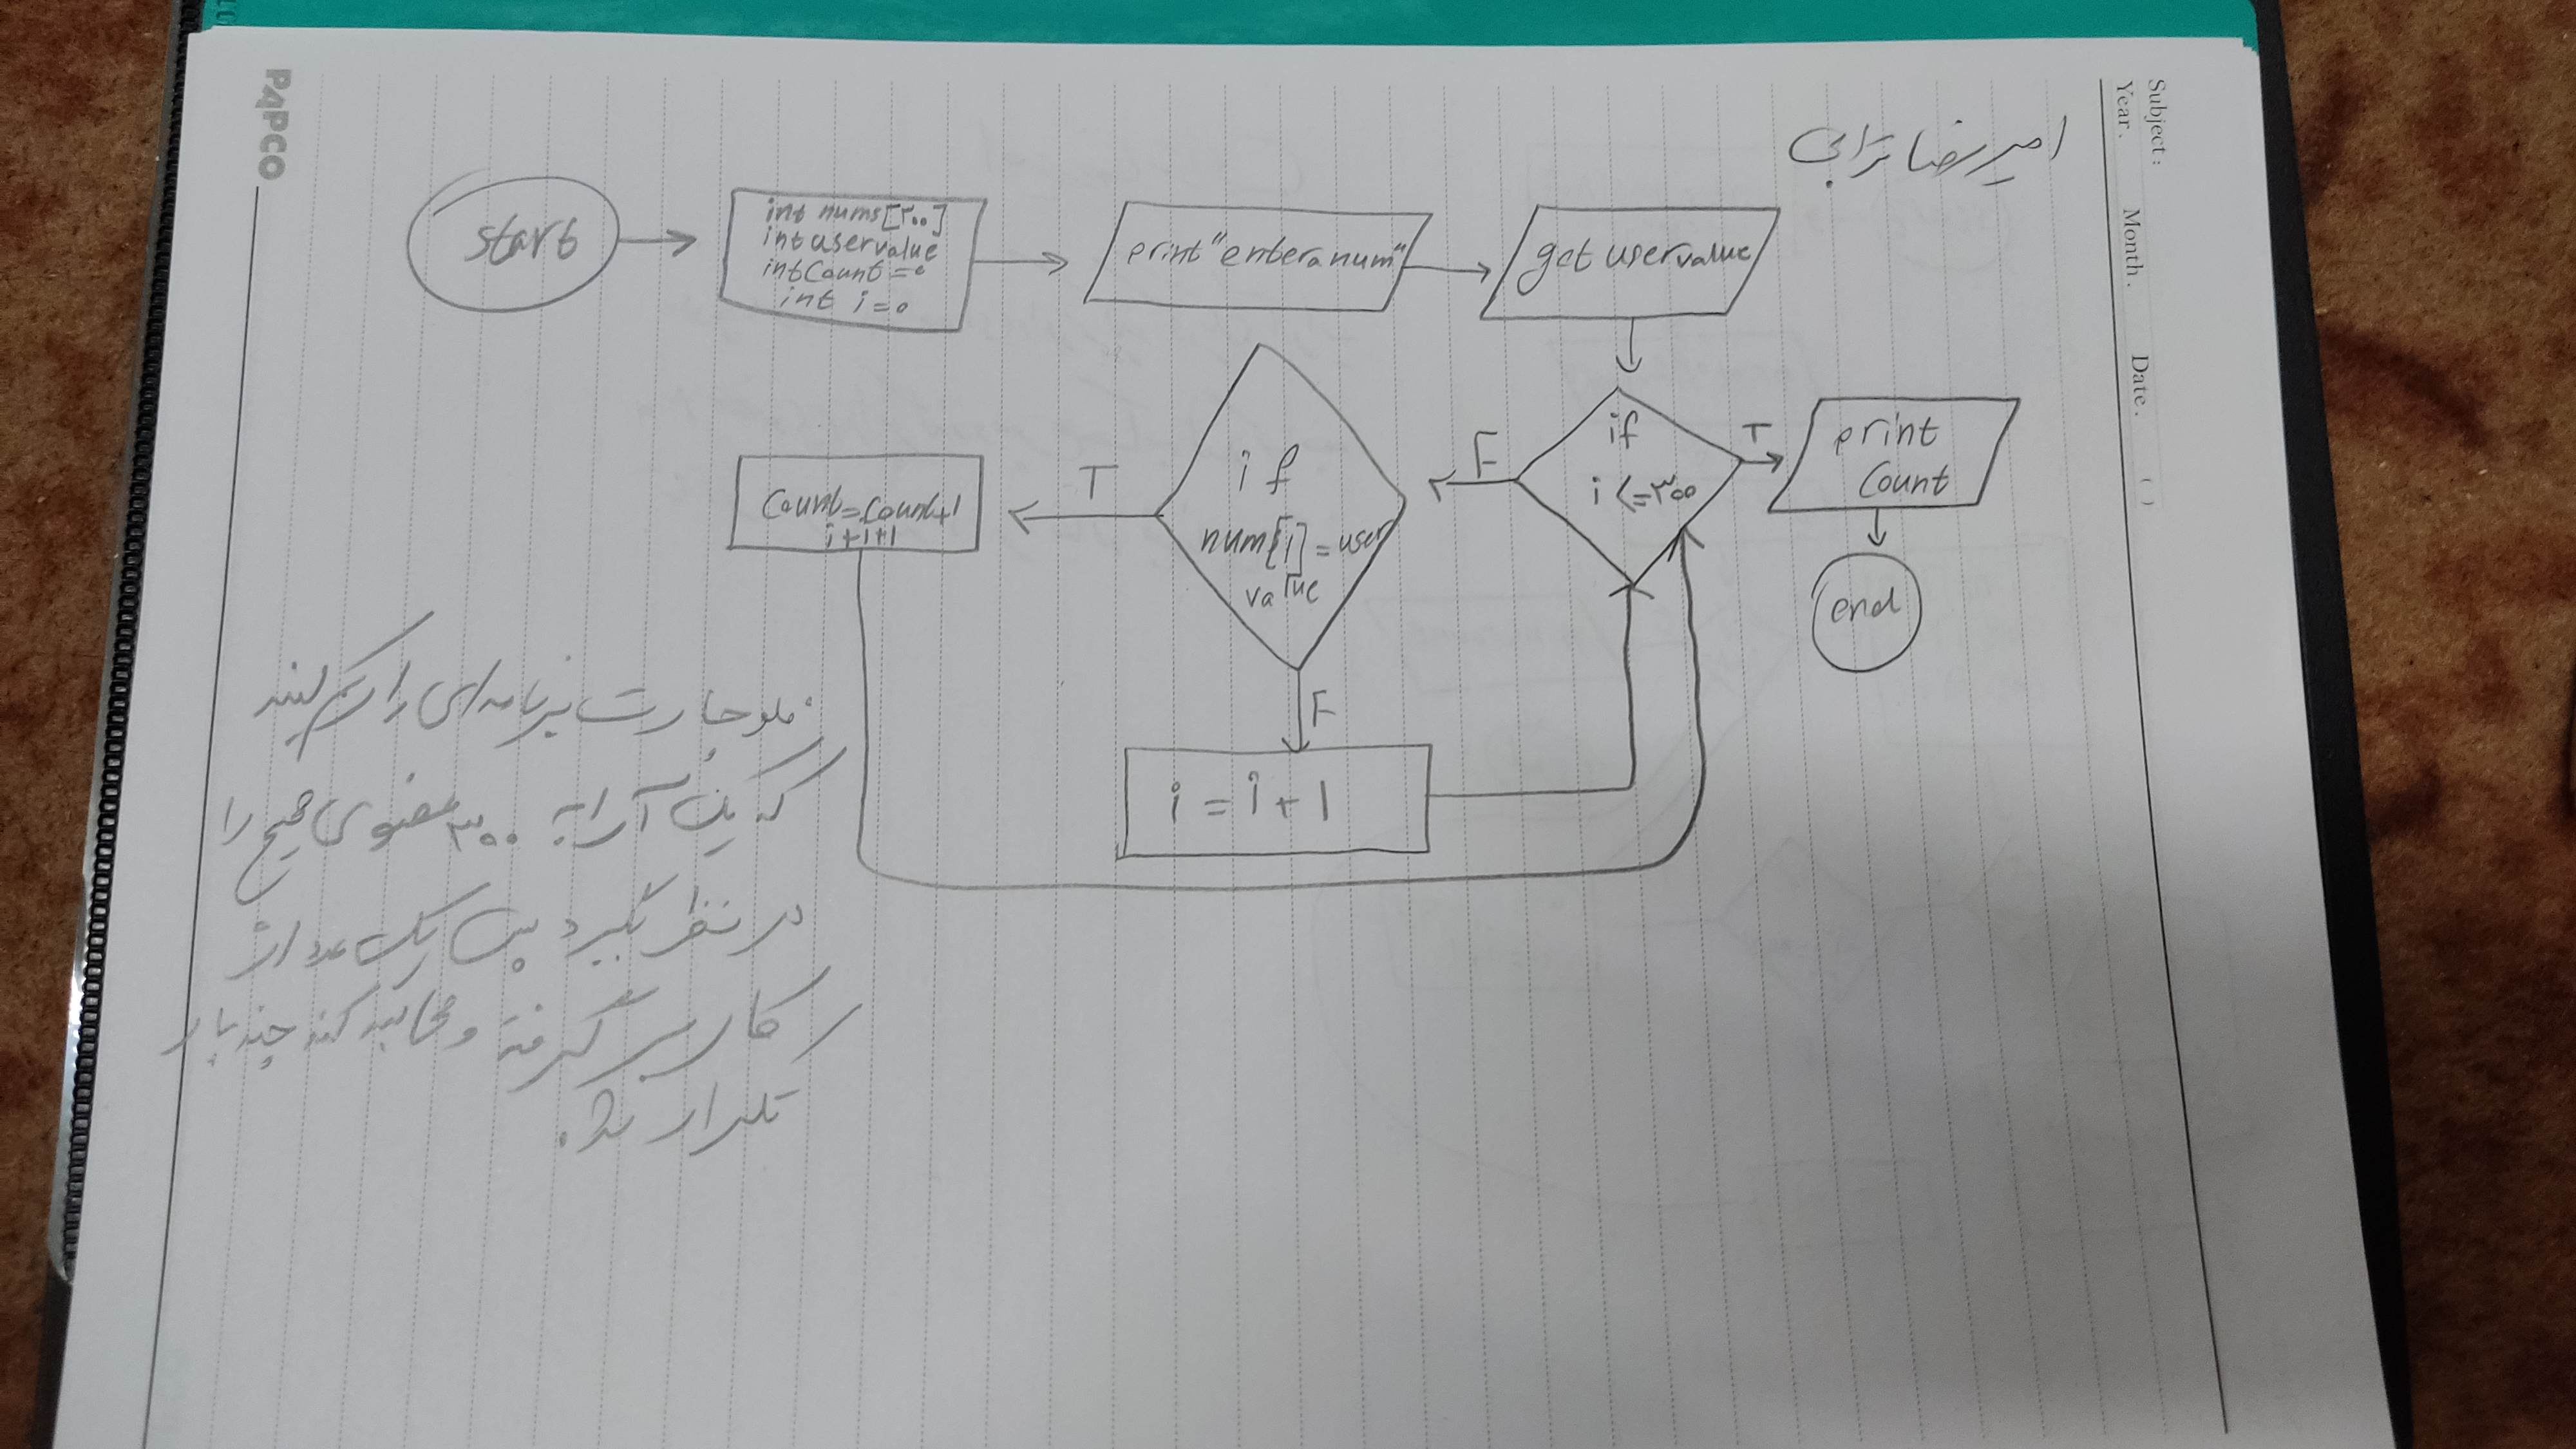 P4PCO
Subject:
Year. Month. Date. ( )
امیررضا ترابی
start
int nums[۳۰۰]
int uservalue
int Count = ۰
int i = ۰
print "enter a num"
get uservalue
if
i <= ۳۰۰
T
print
Count
end
F
if
num[i] = user
value
T
Count = Count + 1
i + i + 1
F
i = i + 1
فلوچارت برنامه ای را رسم کنید
که یک آرایه ۳۰۰ عضوی صحیح را
در نظر بگیرد پس یک عدد از
کاربر گرفته و محاسبه کند چند بار
تکرار شد.